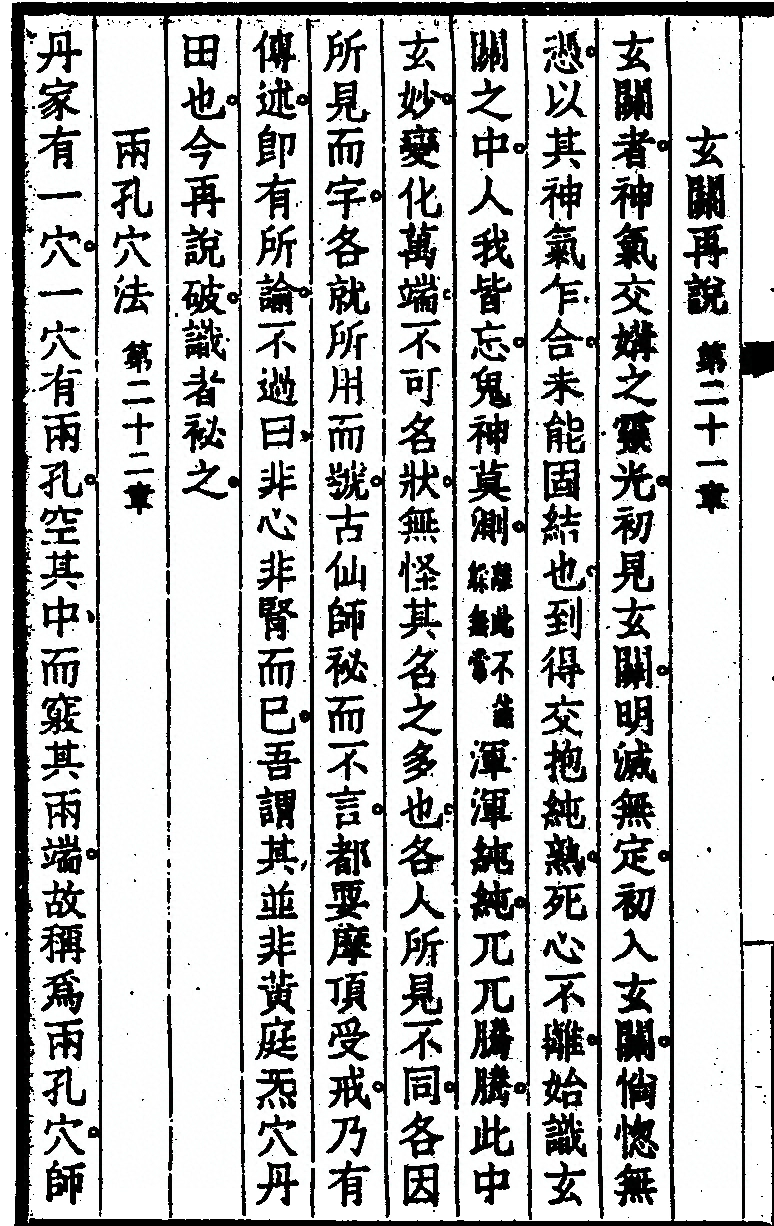 玄關再說 第二十一章
玄關者。神氣交媾之靈光。初見玄關。明滅無定。初入玄關。惝惚無
慿。以其神氣乍合。未能固結也。到得交抱純熟。死心不離。始識玄
關之中。人我皆忘。鬼神莫測。離此不能採無當渾渾純純。兀兀騰騰。此中
玄妙。變化萬端。不可名狀。無怪其名之多也。各人所見不同。各因
所見而字。各就所用而號。古仙師祕而不言。都要摩頂受戒。乃有
傳述。卽有所論。不過曰、非心非腎而已。吾謂其並非黃庭炁穴丹
田也。今再說破。識者祕之。
兩孔穴法 第二十二章
丹家有一穴。一穴有兩孔。空其中、而竅其兩端。故稱爲兩孔穴。師